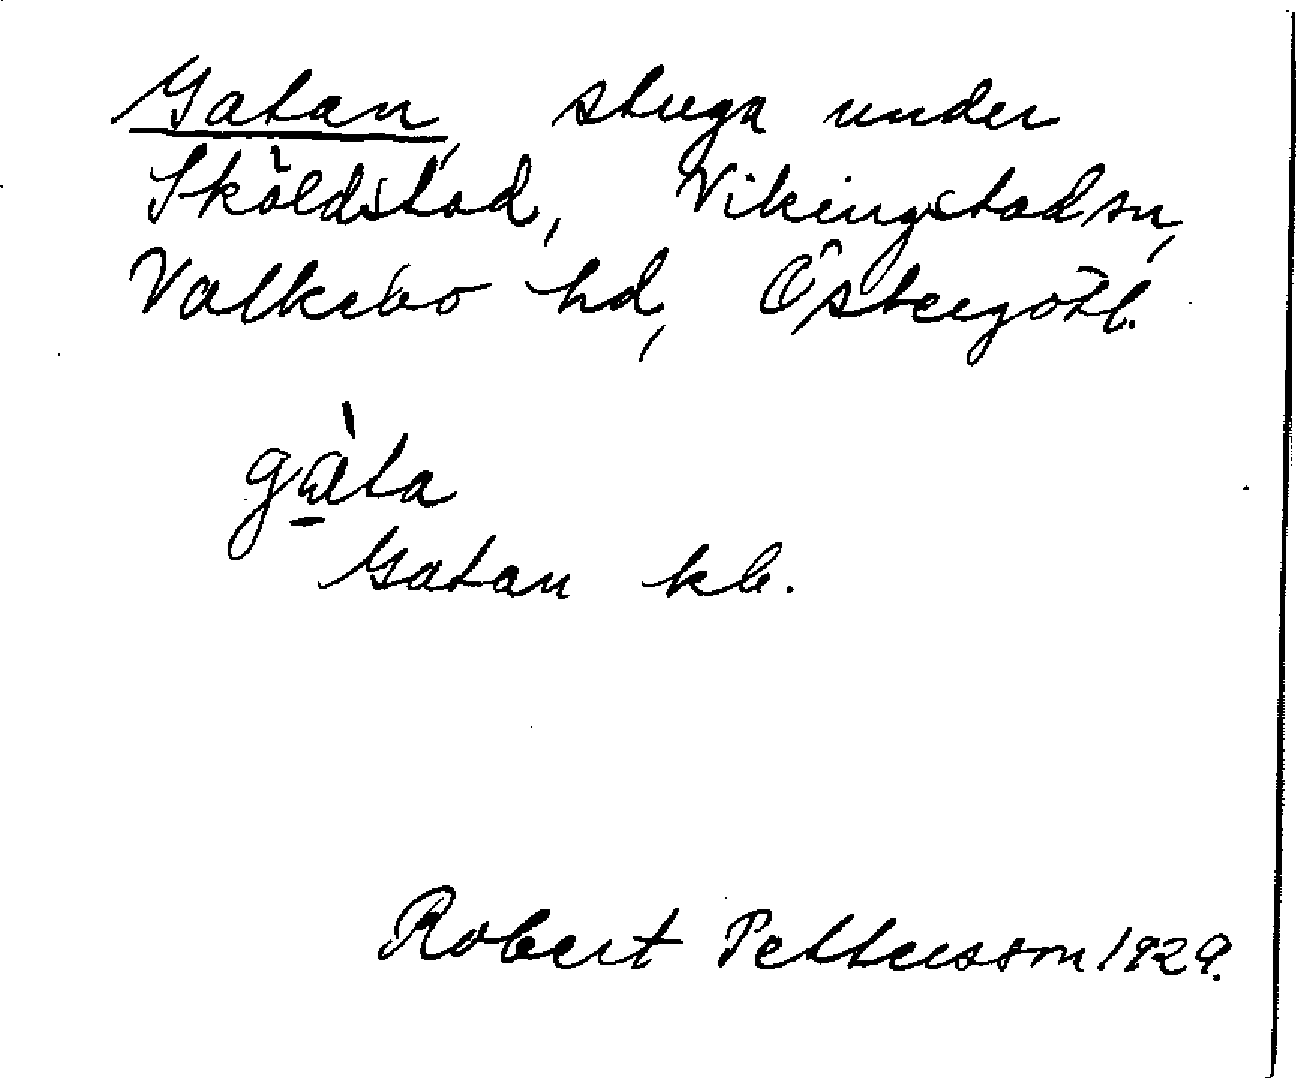 Gatan, stuga under
Sköldstad, Vikingstad sn,
Valkebo hd, Östergötl.
gàta
Gatan kb.
Robert Pettersson 1929.